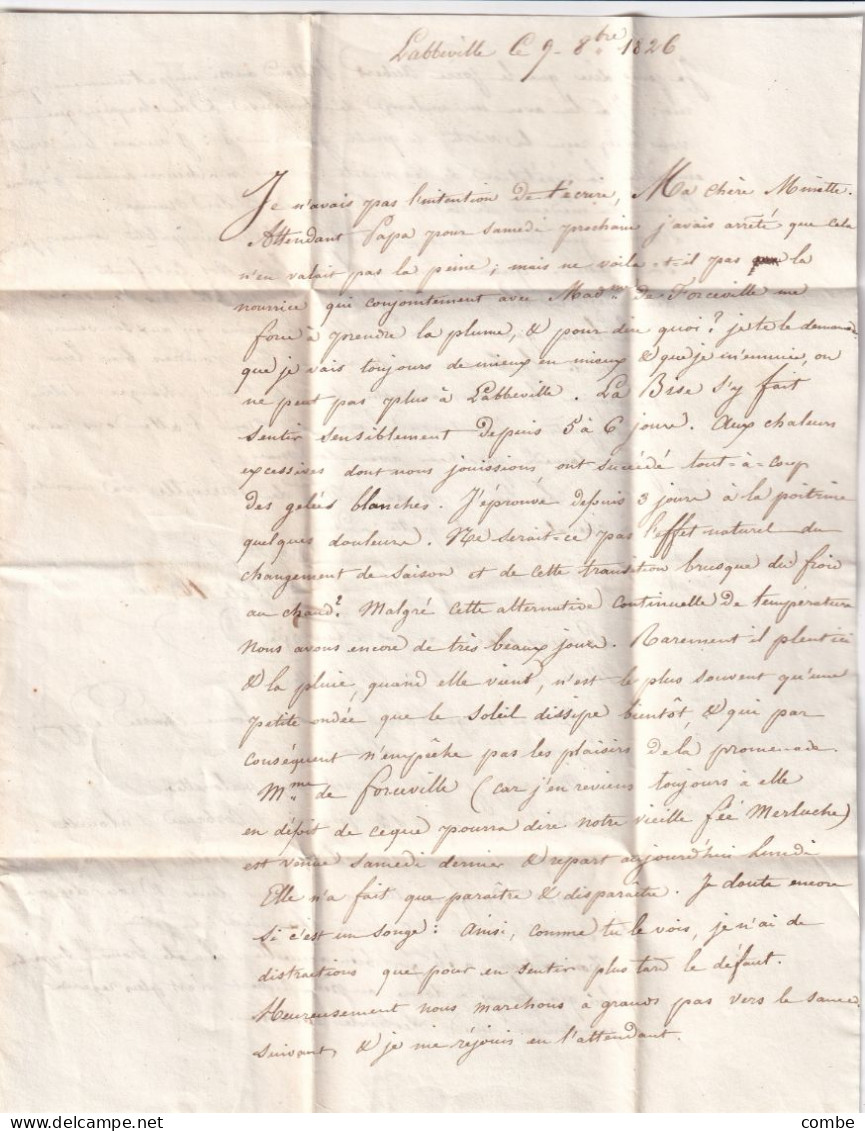 Labbeville le 9 - 8bre 1826
Je n'avais pas l'intention de t'écrire, Ma chère Minette.
Attendant Papa pour samedi prochain j'avais arrêté que cela
n'en valait pas la peine ; mais ne voila-t-il pas la
nourrice qui conjointement avec Madme De Forceville me
force à prendre la plume, & pour dire quoi ? je te le demande
que je vais toujours de mieux en mieux & que je m'ennuie, on
ne peut pas plus à Labbeville. La Bise s'y fait
sentir sensiblement depuis 5 à 6 jours. Aux chaleurs
excessives dont nous jouissions, ont succédé tout-à-coup
des gelées blanches. J'éprouve depuis 3 jours à la poitrine
quelques douleurs. Ne serait-ce pas l'effet naturel du
changement de saison et de cette transition brusque du froid
au chaud ? Malgré cette alternative continuelle de température
nous avons encore de très beaux jours. Rarement il pleut ici
& la pluie, quand elle vient, n'est le plus souvent qu'une
petite ondée que le soleil dissipe bientôt, & qui par
conséquent n'empêche pas les plaisirs de la promenade.
Mme de Forceville (car j'en reviens toujours à elle
en dépit de ce que pourra dire notre vieille fée Merluche)
est venue samedi dernier & repart aujourd'hui Lundi
Elle n'a fait que paraître & disparaître. Je doute encore
si c'est un songe : Ainsi, comme tu le vois, je n'ai de
distractions que pour en sentir plus tard le défaut.
Heureusement nous marchons à grands pas vers le samedi
suivant, & je me réjouis en l'attendant.
combe